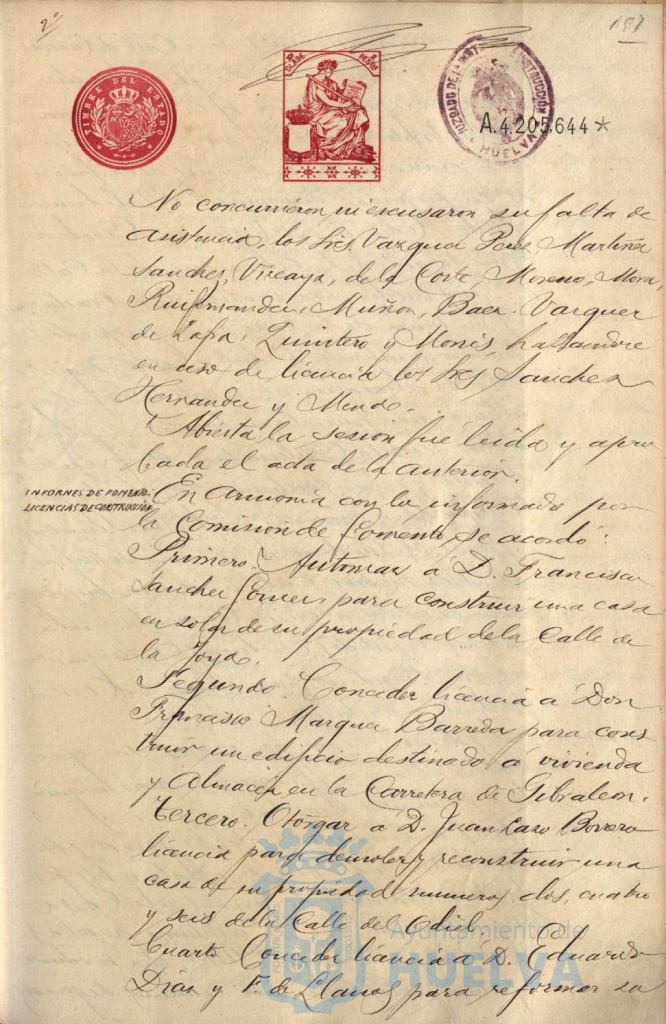 2º
157
TIMBRE DEL ESTADO
CLASE
JUZGADO DE 1ª INST E INSTRUCCIÓN
HUELVA
A.4.205.644*
No concurrieron ni excusaron su falta de
asistencia, los Sres Vazquez Perez, Martinez
Sanchez, Vizcaya, de la Corte, Moreno, Mora,
Ruifernandez, Muñoz, Baez, Vazquez
de Zafra, Quintero y Monis, hallandose
en uso de licencia los Sres Sanchez
Hernandez y
Abierta la sesión fué leida y apro
bada el acta de la anterior.
INFORNES DE FOMENTO.
LICENCIAS DE CONSTRUCCIÓN
En armonia con lo informado por
la Comisión de Fomento se acordó:
Primero. Autorizar á D. Francisco
Sanchez Gomez, para construir una casa
en solar de su propiedad de la Calle de
la Joya.
Segundo. Conceder licencia á Don
Francisco Marquez Barreda para cons
truir un edificio destinado á vivienda
y almacén en la Carretera de Gibraleon.
Tercero. Otorgar á D. Juan Lazo Borrero
licencia para demoler y reconstruir una
casa de su propiedad numeros dos, cuatro
y seis de la Calle del Odiel.
Cuarto Conceder licencia á D. Eduardo
Diaz y F. de Llanos para reformar la
Ayuntamiento de
HUELVA